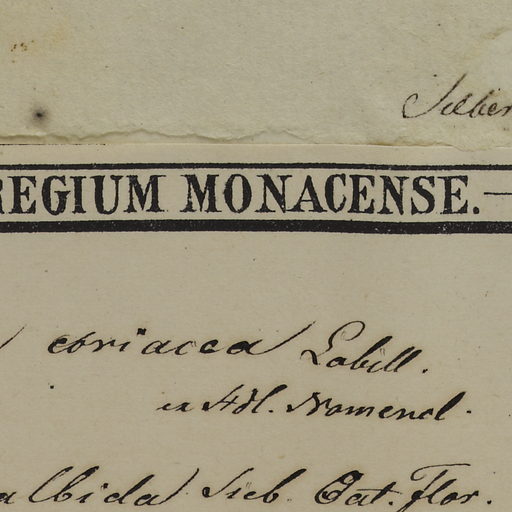 Sieber
REGIUM MONACENSE.—
coriacea Labill.
ex Stdl. Nomencl.
albida Sieb. Cat. Flor.